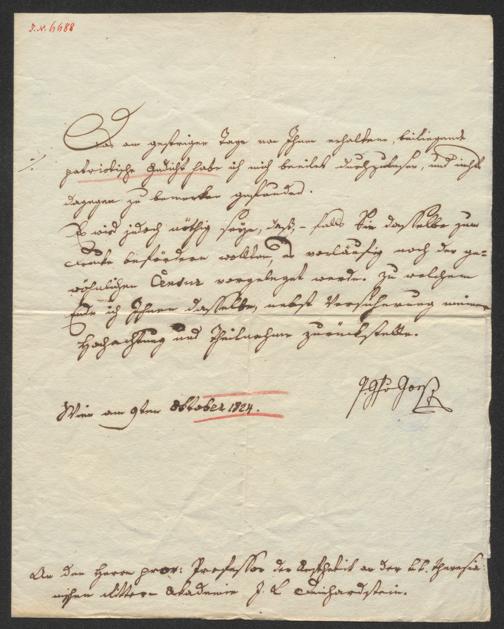 I.N. 6688
Das am gestrigen Tage von Ihnen erhaltene, beiliegende
patriotische Gedicht habe ich mich beeilet durchzulesen, und nichts
dagegen zu bemerken gefunden.
Es wird jedoch nöthig seyn, daß, – falls Sie dasselbe zum
Drucke befördern wollten, es vorläufig noch der ge-
wöhnlichen Censur vorgeleget werde; zu welchem
Ende ich Ihnen dasselbe, nebst Versicherung meiner
Hochachtung und Theilnahme zurückstelle.
Wien am 9ten Oktober 1824.
An den Herrn prov: Professor der Aesthetik an der k.k. Theresia-
nischen Ritter-Akademie J. L. Deinhardstein.